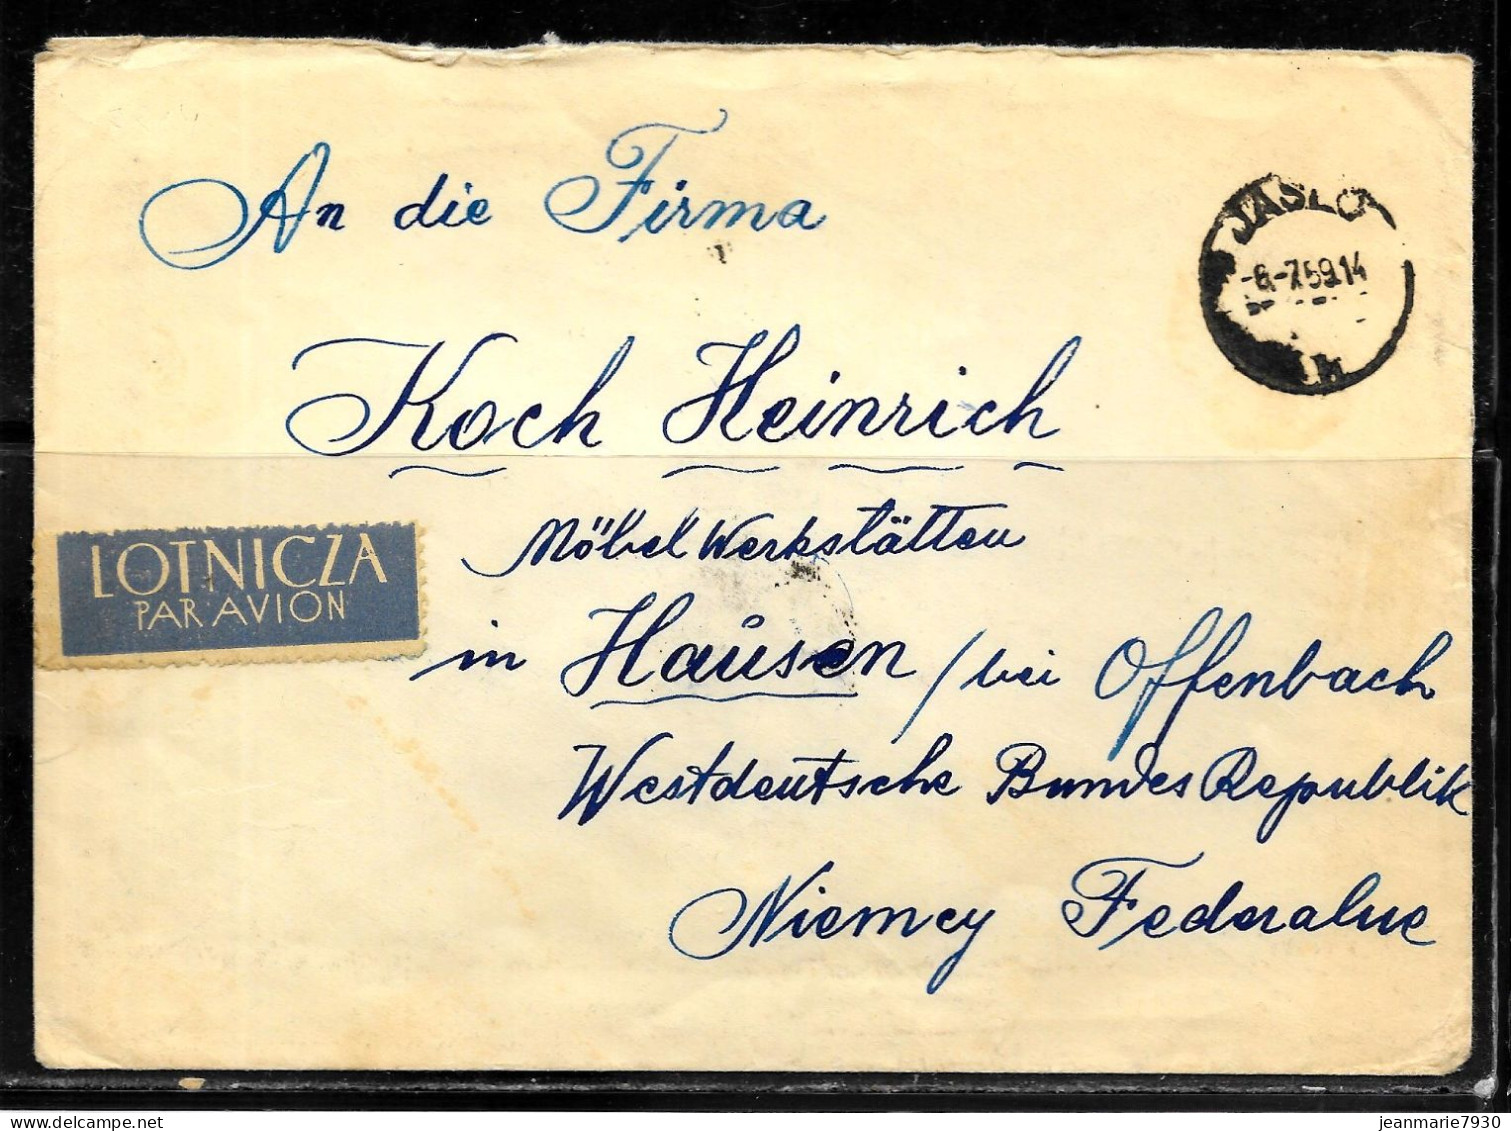 An die Firma
JASŁO
-6.-7.59.14
Koch Heinrich
Möbel Werkstätten
LOTNICZA
PAR AVION
in Hausen / bei Offenbach
Westdeutsche BundesRepublik
Niemcy Federalne
jeanmarie7930